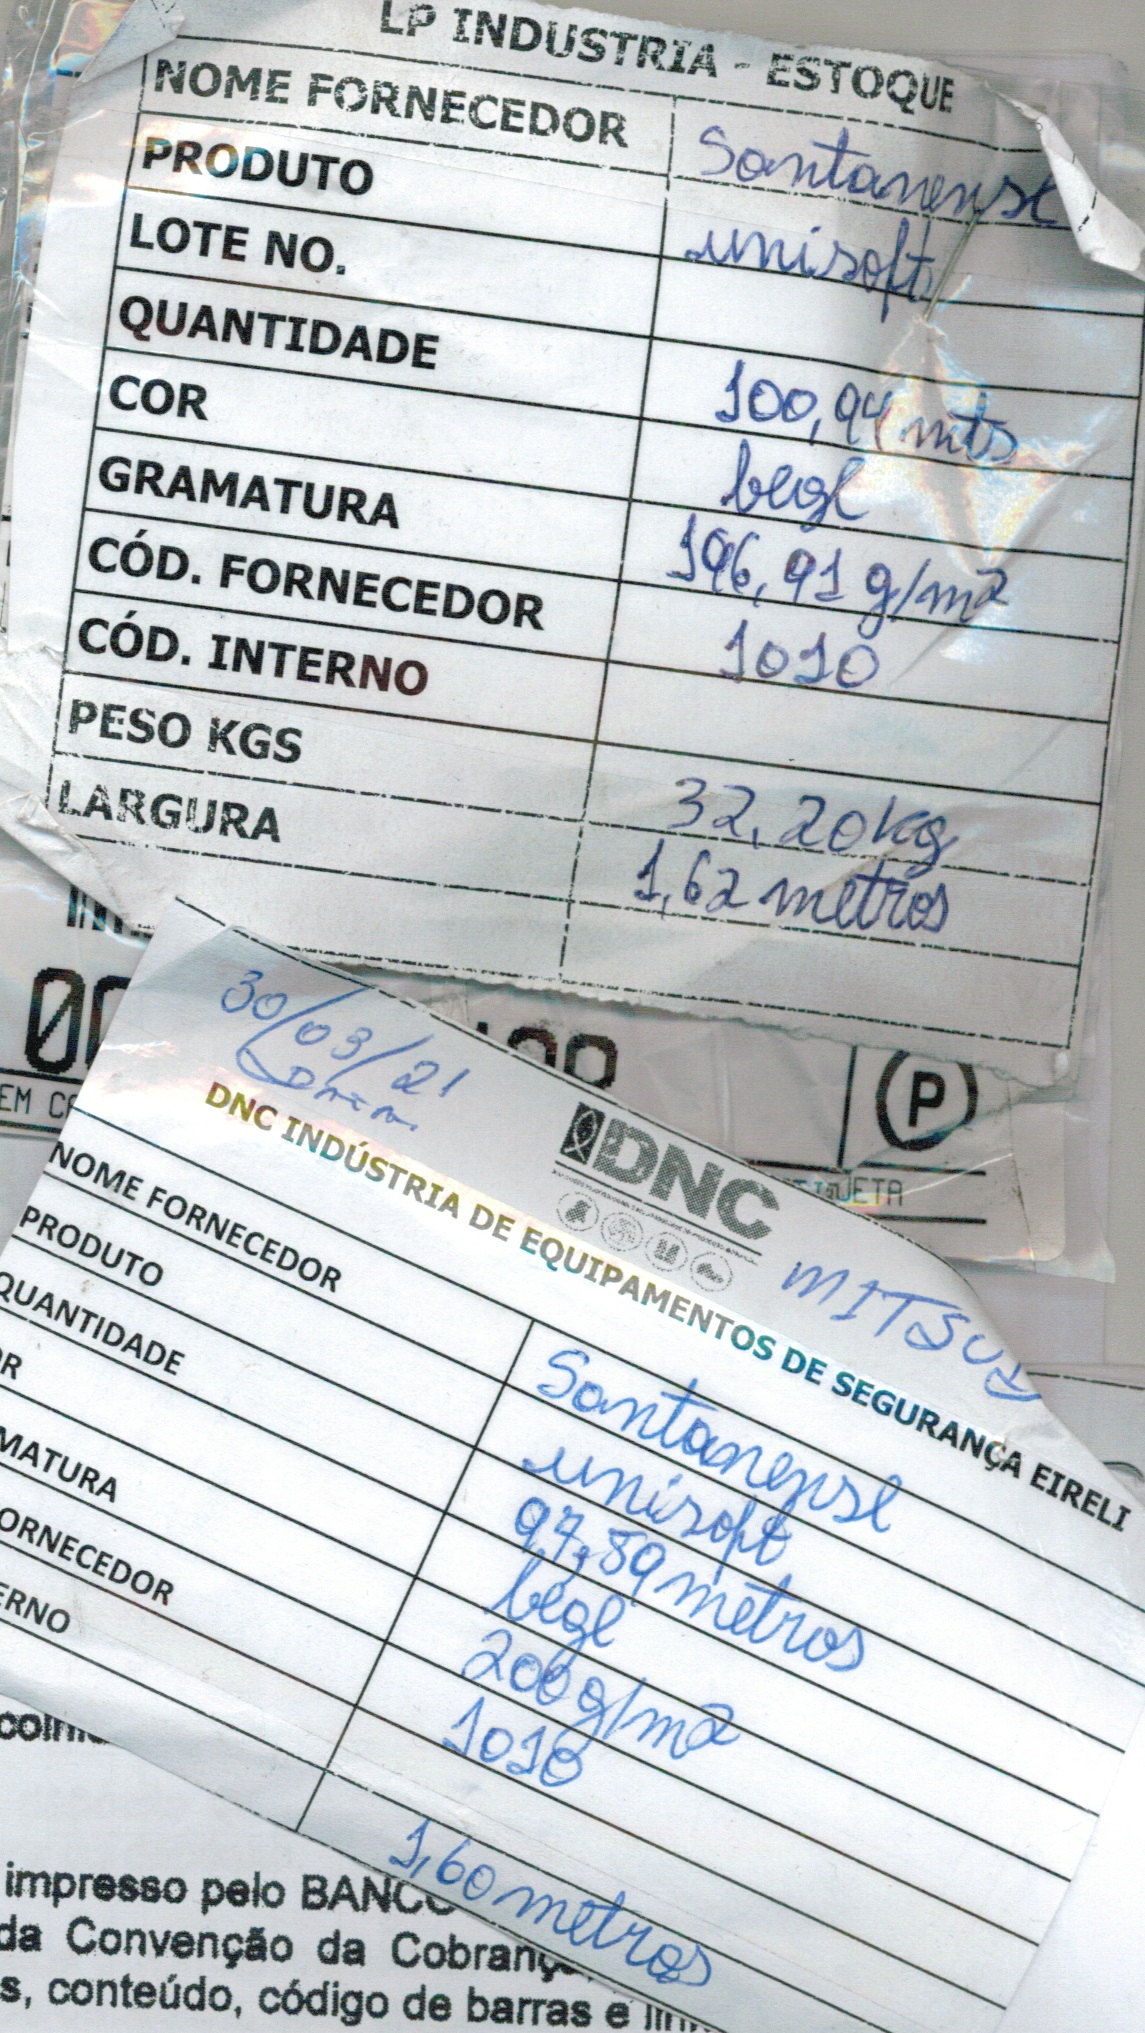 LP INDUSTRIA - ESTOQUE
NOME FORNECEDOR Santanense
PRODUTO unisoft
LOTE NO.
QUANTIDADE 100,94 mts
COR bege
GRAMATURA 196,91 g/m2
CÓD. FORNECEDOR 1010
CÓD. INTERNO
PESO KGS 32,20kg
LARGURA 1,62 metros
P
30/03/21
DNC
MITSUI
DNC INDÚSTRIA DE EQUIPAMENTOS DE SEGURANÇA EIRELI
NOME FORNECEDOR Santanense
PRODUTO unisoft
QUANTIDADE 97,89 metros
OR bege
MATURA 200g/m2
ORNECEDOR 1010
ERNO
1,60 metros
impresso pelo BANCO
da Convenção da Cobranç
s, conteúdo, código de barras e